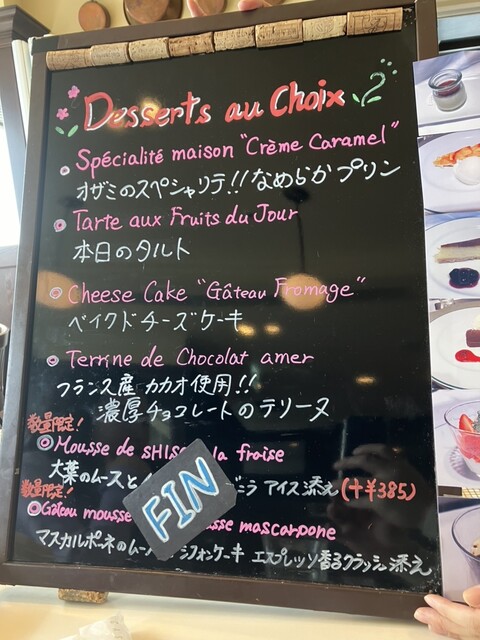 Desserts au Choix
Spécialité maison "Crème Caramel"
オザミのスペシャリテ!! なめらかプリン
Tarte aux Fruits du Jour
本日のタルト
Cheese Cake "Gâteau Fromage"
ベイクドチーズケーキ
Terrine de Chocolat amer
フランス産カカオ使用!!
濃厚チョコレートのテリーヌ
数量限定!
Mousse de SHIS la fraise
大葉のムースと ニラ アイス添え(+¥385)
数量限定!
FIN
Gâteau mousse mascarpone
マスカルポーネのムー シフォンケーキ エスプレッソ香るクラッシュ添え